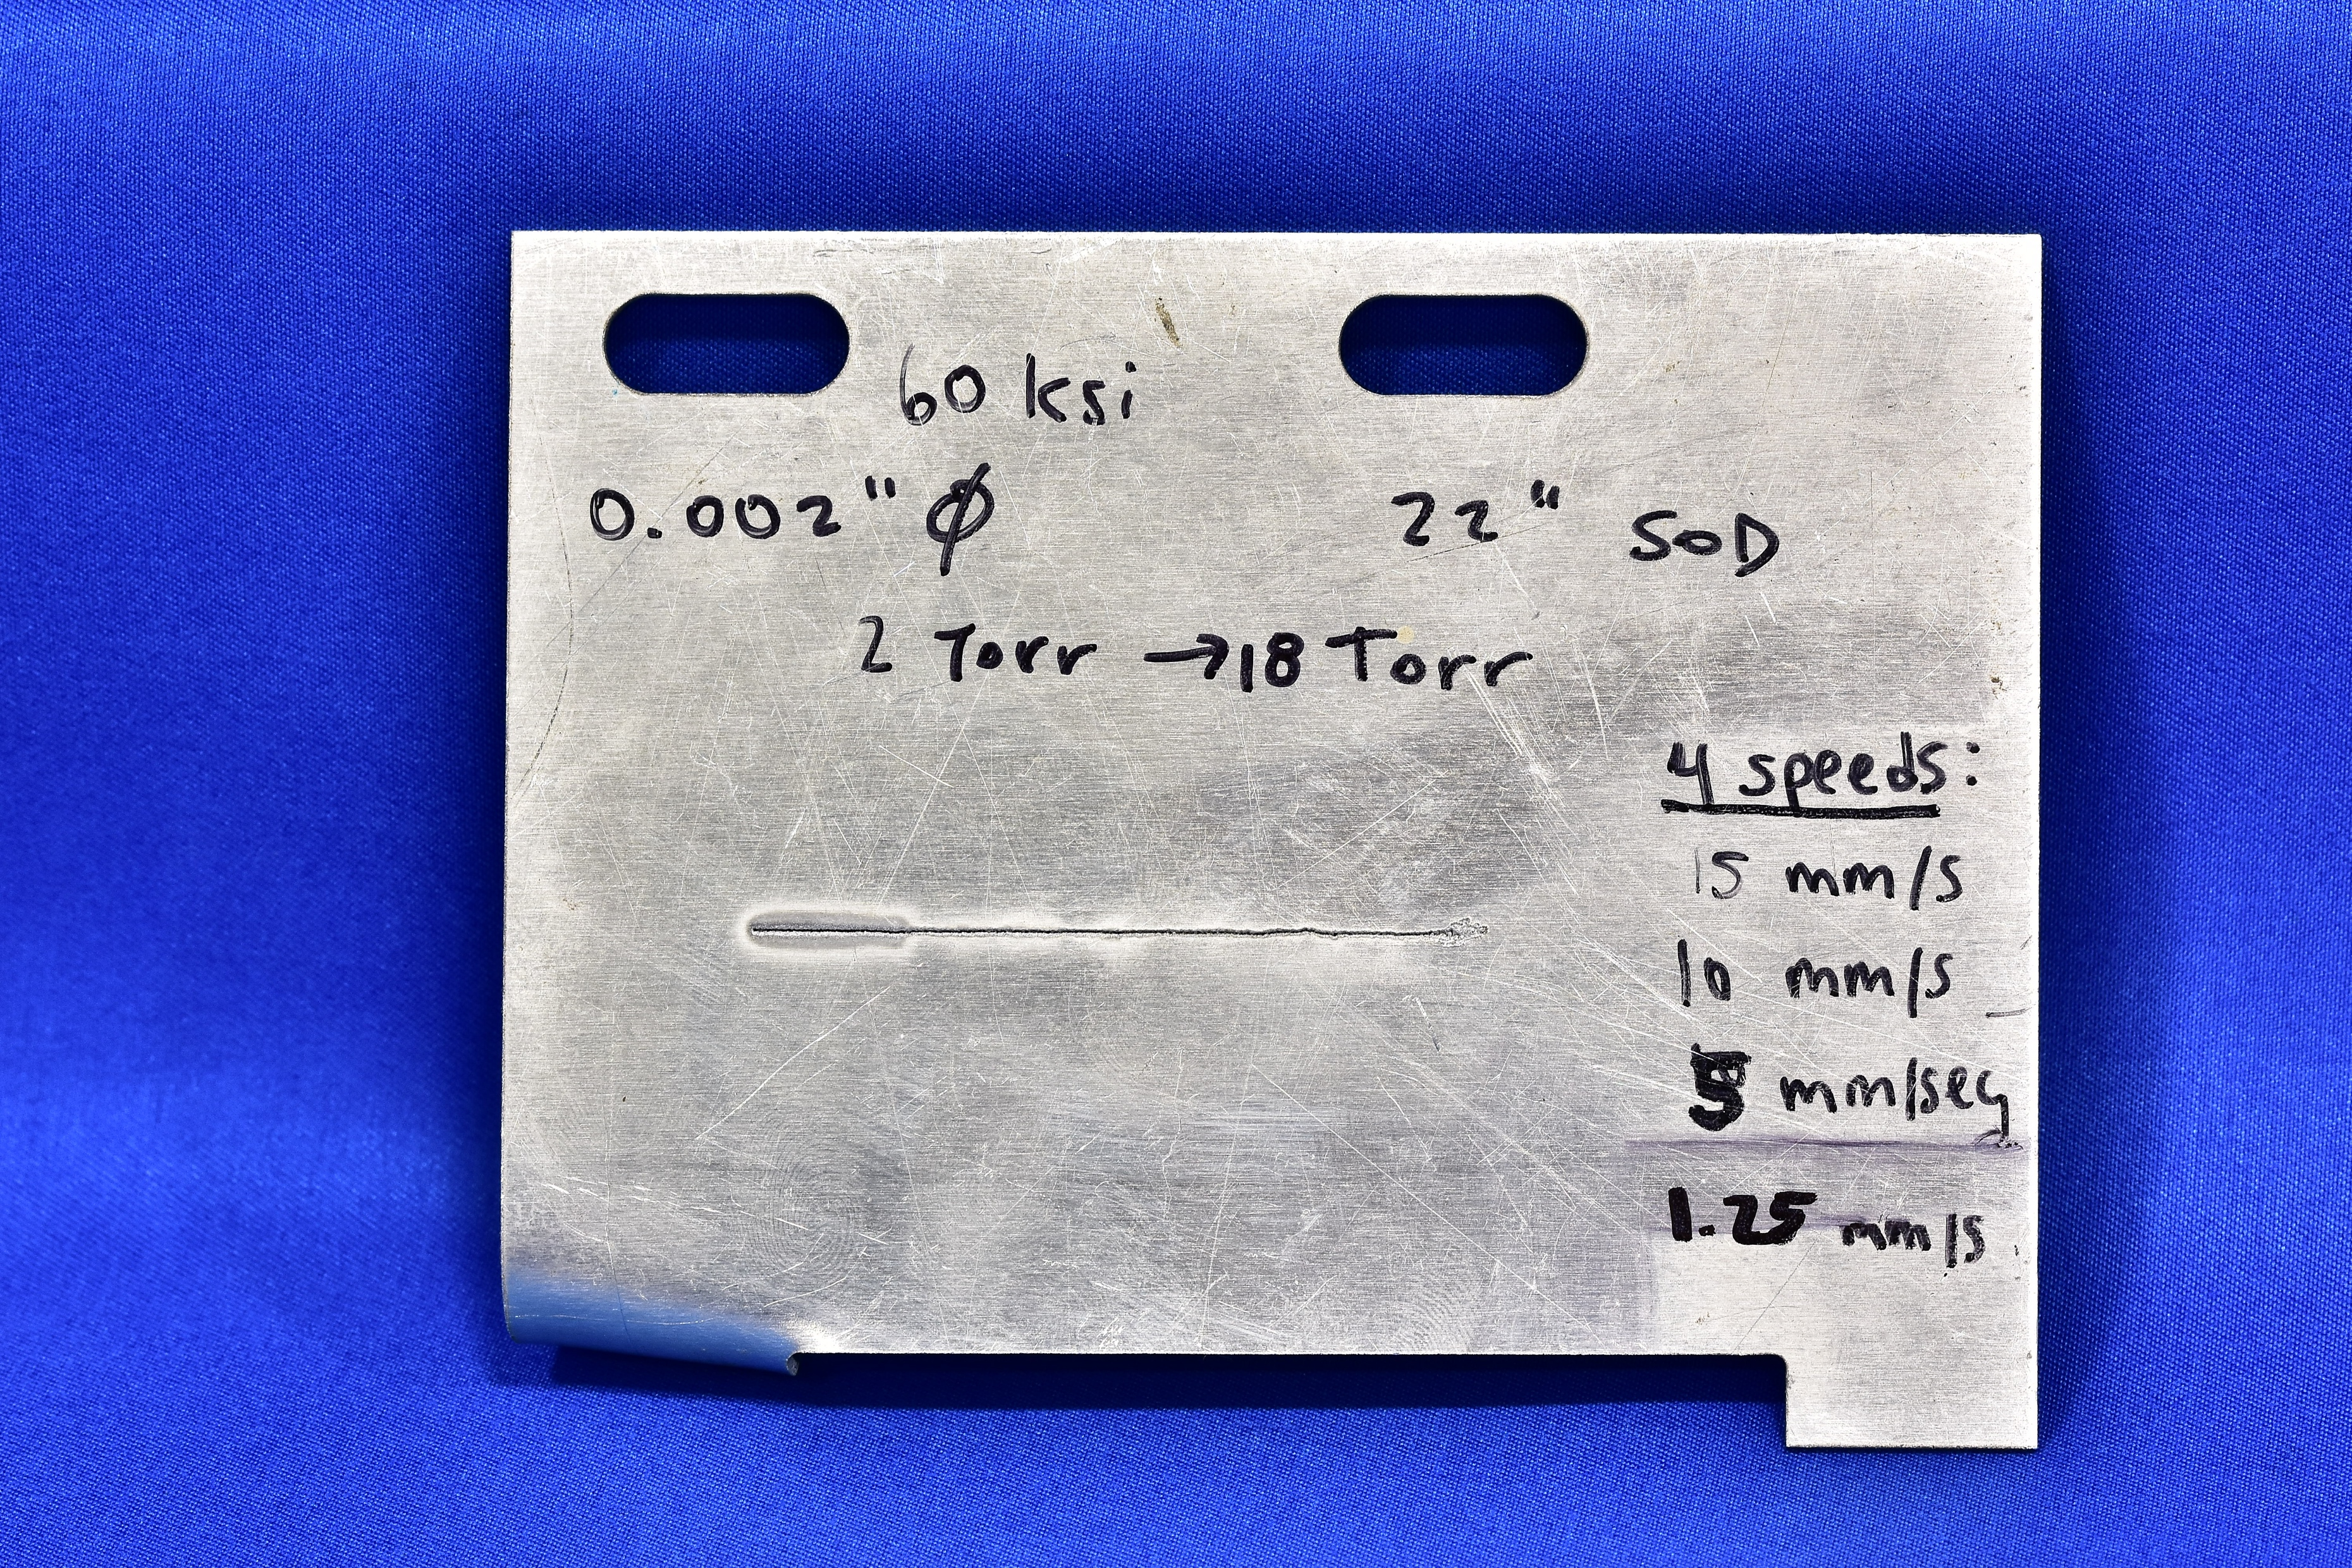 60 ksi
0.002" ϕ 22" SOD
2 Torr → 18 Torr
4 speeds:
15 mm/s
10 mm/s
5 mm/sec
1.25 mm/s